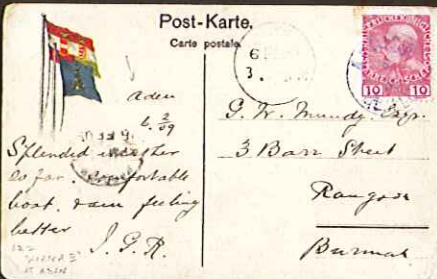 Post-Karte.
Carte postale.
10 10
Aden
6.2/09
Splendid weather
so far. comfortable
boat. & am feeling
better
J.G.R.
G. W. Mundy Esqr.
3 Barr Street
Rangoon
Burmah